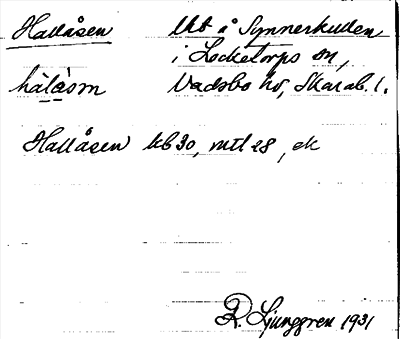 Hallåsen Ut å Synnerkullen
i Locketorps sn,
hàlàsm Vadsbo hd, Skarab. l.
Hallåsen kb 30, mtl 28, ek
R. Ljunggren 1931